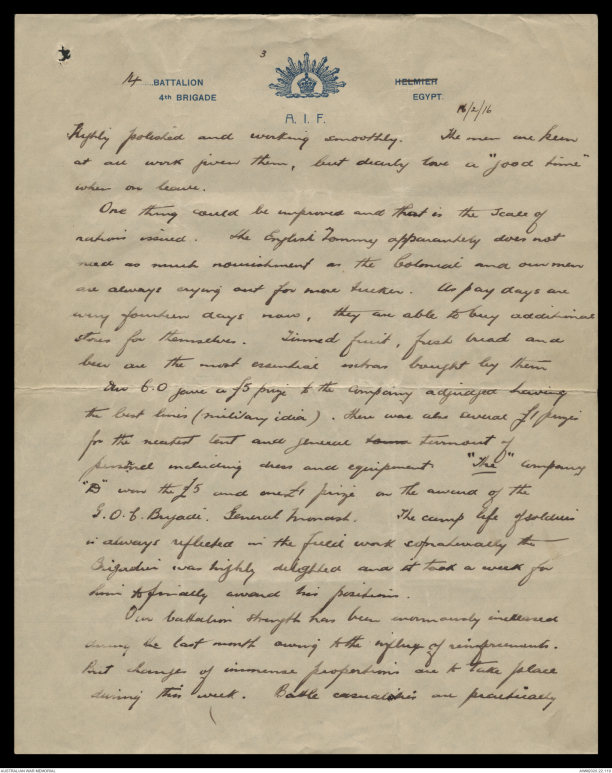 3
14 BATTALION
4th BRIGADE
HELMIER
EGYPT.
A. I. F.
16/2/16
Highly polished and working smoothly. The men are keen
at all work given them, but dearly love a "good time"
when on leave.
One thing could be improved and that is the scale of
rations issued. The English Tommy apparantely does not
need as much nourishment as the Colonial and our men
are always crying out for more tucker. As pay days are
every fourteen days now, they are able to buy additional
stores for themselves. Tinned fruit, fresh bread and
beer are the most essential extras bought by them
Our C.O gave a £5 prize to the company adjudged having
the best lines (military idea). There was also several £1 prizes
for the neatest tent and general turnout of
personel including dress and equipment. "The" Company
"D" won the £5 and one £1 prize on the award of the
G.O.C. Brigade. General Monash. The camp life of soldiers
is always reflected in the field work so naturally the
Brigadier was highly delighted and it took a week for
him to finally award his positions.
Our battalion strength has been enormously increased
during the last month owing to the influx of reinforcements.
But changes of immense proportions are to take place
during this week. Battle casualties are practically
AUSTRALIAN WAR MEMORIAL